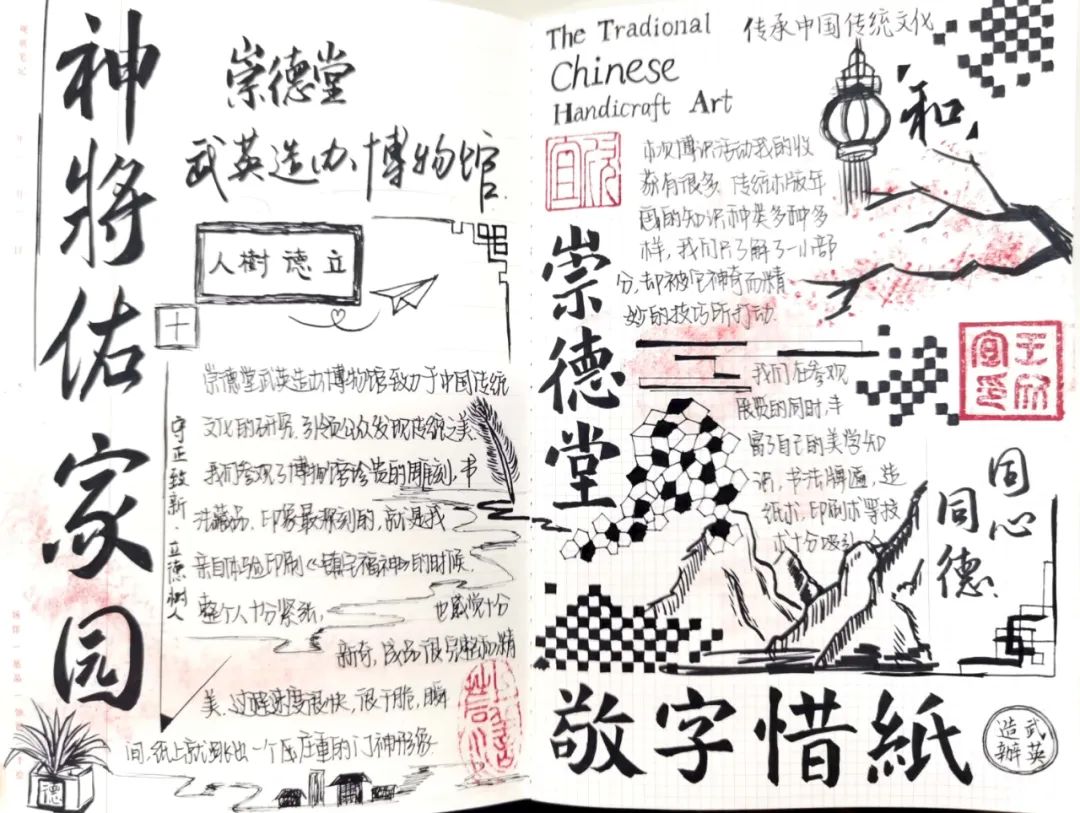 神將佑家园
崇德堂
武英造办博物馆
人樹德立
十
守正致新·立德树人
崇德堂武英造办博物馆致力于中国传统
文化的研究,引领公众发现传统之美.
我们参观了博物馆珍贵的雕刻,书
法藏品,印象最深刻的,就是我
亲自体验印刷《镇宅福神》的时候.
整个人十分紧张, 也感觉十分
新奇,成品很完整而精
美.过程速度很快,很干脆,瞬
间,纸上就出一个庄重的门神形象
德
The Tradional
Chinese
Handicraft Art
传承中国传统文化
和
本次博识活动我的收
获有很多.传统木版年
画的知识种类多种多
样,我们只了解了一小部
分,却被它神奇而精
妙的技巧所打动.
崇德堂
我们在参观
展览的同时,丰
富了自己的美学知
识,书法牌匾,造
纸术,印刷术等技
术十分吸引
同心
同德
敬字惜紙
武英
造辦